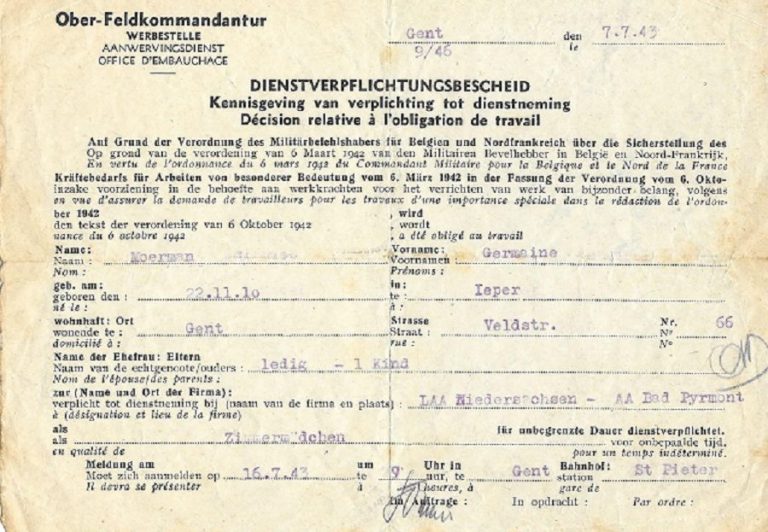 Ober-Feldkommandantur
WERBESTELLE
AANWERVINGSDIENST
OFFICE D'EMBAUCHAGE
Gent den 7.7.43
9/46 le
DIENSTVERPFLICHTUNGSBESCHEID
Kennisgeving van verplichting tot dienstneming
Décision relative à l'obligation de travail
Auf Grund der Verordnung des Militärbefehlshabers für Belgien und Nordfrankreich über die Sicherstellung des
Op grond van de verordening van 6 Maart 1942 van den Militairen Bevelhebber in België en Noord-Frankrijk,
En vertu de l'ordonnance du 6 mars 1942 du Commandant Militaire pour la Belgique et le Nord de la France
Kräftebedarfs für Arbeiten von besonderer Bedeutung vom 6. März 1942 in der Fassung der Verordnung vom 6. Okto-
inzake voorziening in de behoefte aan werkkrachten voor het verrichten van werk van bijzonder belang, volgens
en vue d'assurer la demande de travailleurs pour les travaux d'une importance spéciale dans la rédaction de l'ordon-
ber 1942 , wird
den tekst der verordening van 6 Oktober 1942 , wordt
nance du 6 octobre 1942 , a été obligé au travail
Name: Vorname:
Naam : Moerman Voornamen : Germaine
Nom : Prénoms :
geb. am: in:
geboren den : 22.11.10 te : Ieper
né le : à :
wohnhaft: Ort Strasse Nr. 66
wonende te : Gent Straat : Veldstr. N°
domicilié à : rue : N°
Name der Ehefrau: Eltern
Naam van de echtgenoote/ouders : ledig - 1 Kind
Nom de l'épouse/des parents :
zur (Name und Ort der Firma):
verplicht tot dienstneming bij (naam van de firma en plaats) : LAA Niedersachsen - AA Bad Pyrmont
à (désignation et lieu de la firme)
als für unbegrenzte Dauer dienstverpflichtet.
als Zimmermädchen voor onbepaalde tijd.
en qualité de pour un temps indéterminé.
Meldung am um Uhr in Bahnhof:
Moet zich aanmelden op 16.7.43 te 9 uur, te Gent station St Pieter
Il devra se présenter à heures, à gare de
Im Auftrage : In opdracht : Par ordre :